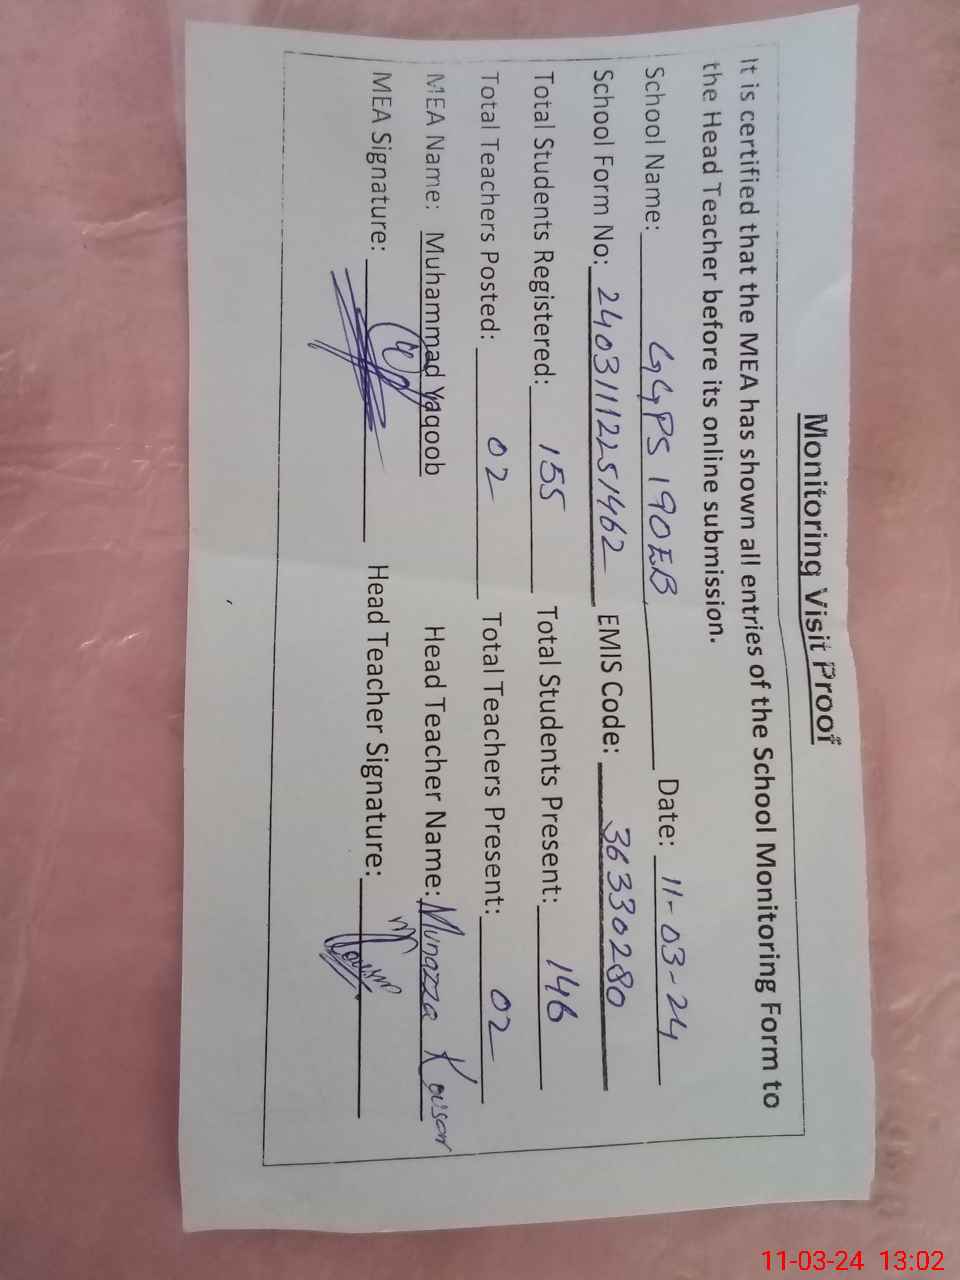 Monitoring Visit Proof
It is certified that the MEA has shown all entries of the School Monitoring Form to
the Head Teacher before its online submission.
School Name: GGPS 190EB Date: 11-03-24
School Form No: 24031112251462 EMIS Code: 36330280
Total Students Registered: 155 Total Students Present: 146
Total Teachers Posted: 02 Total Teachers Present: 02
MEA Name: Muhammad Yaqoob Head Teacher Name: Munazza Kousar
MEA Signature: Head Teacher Signature:
11-03-24 13:02